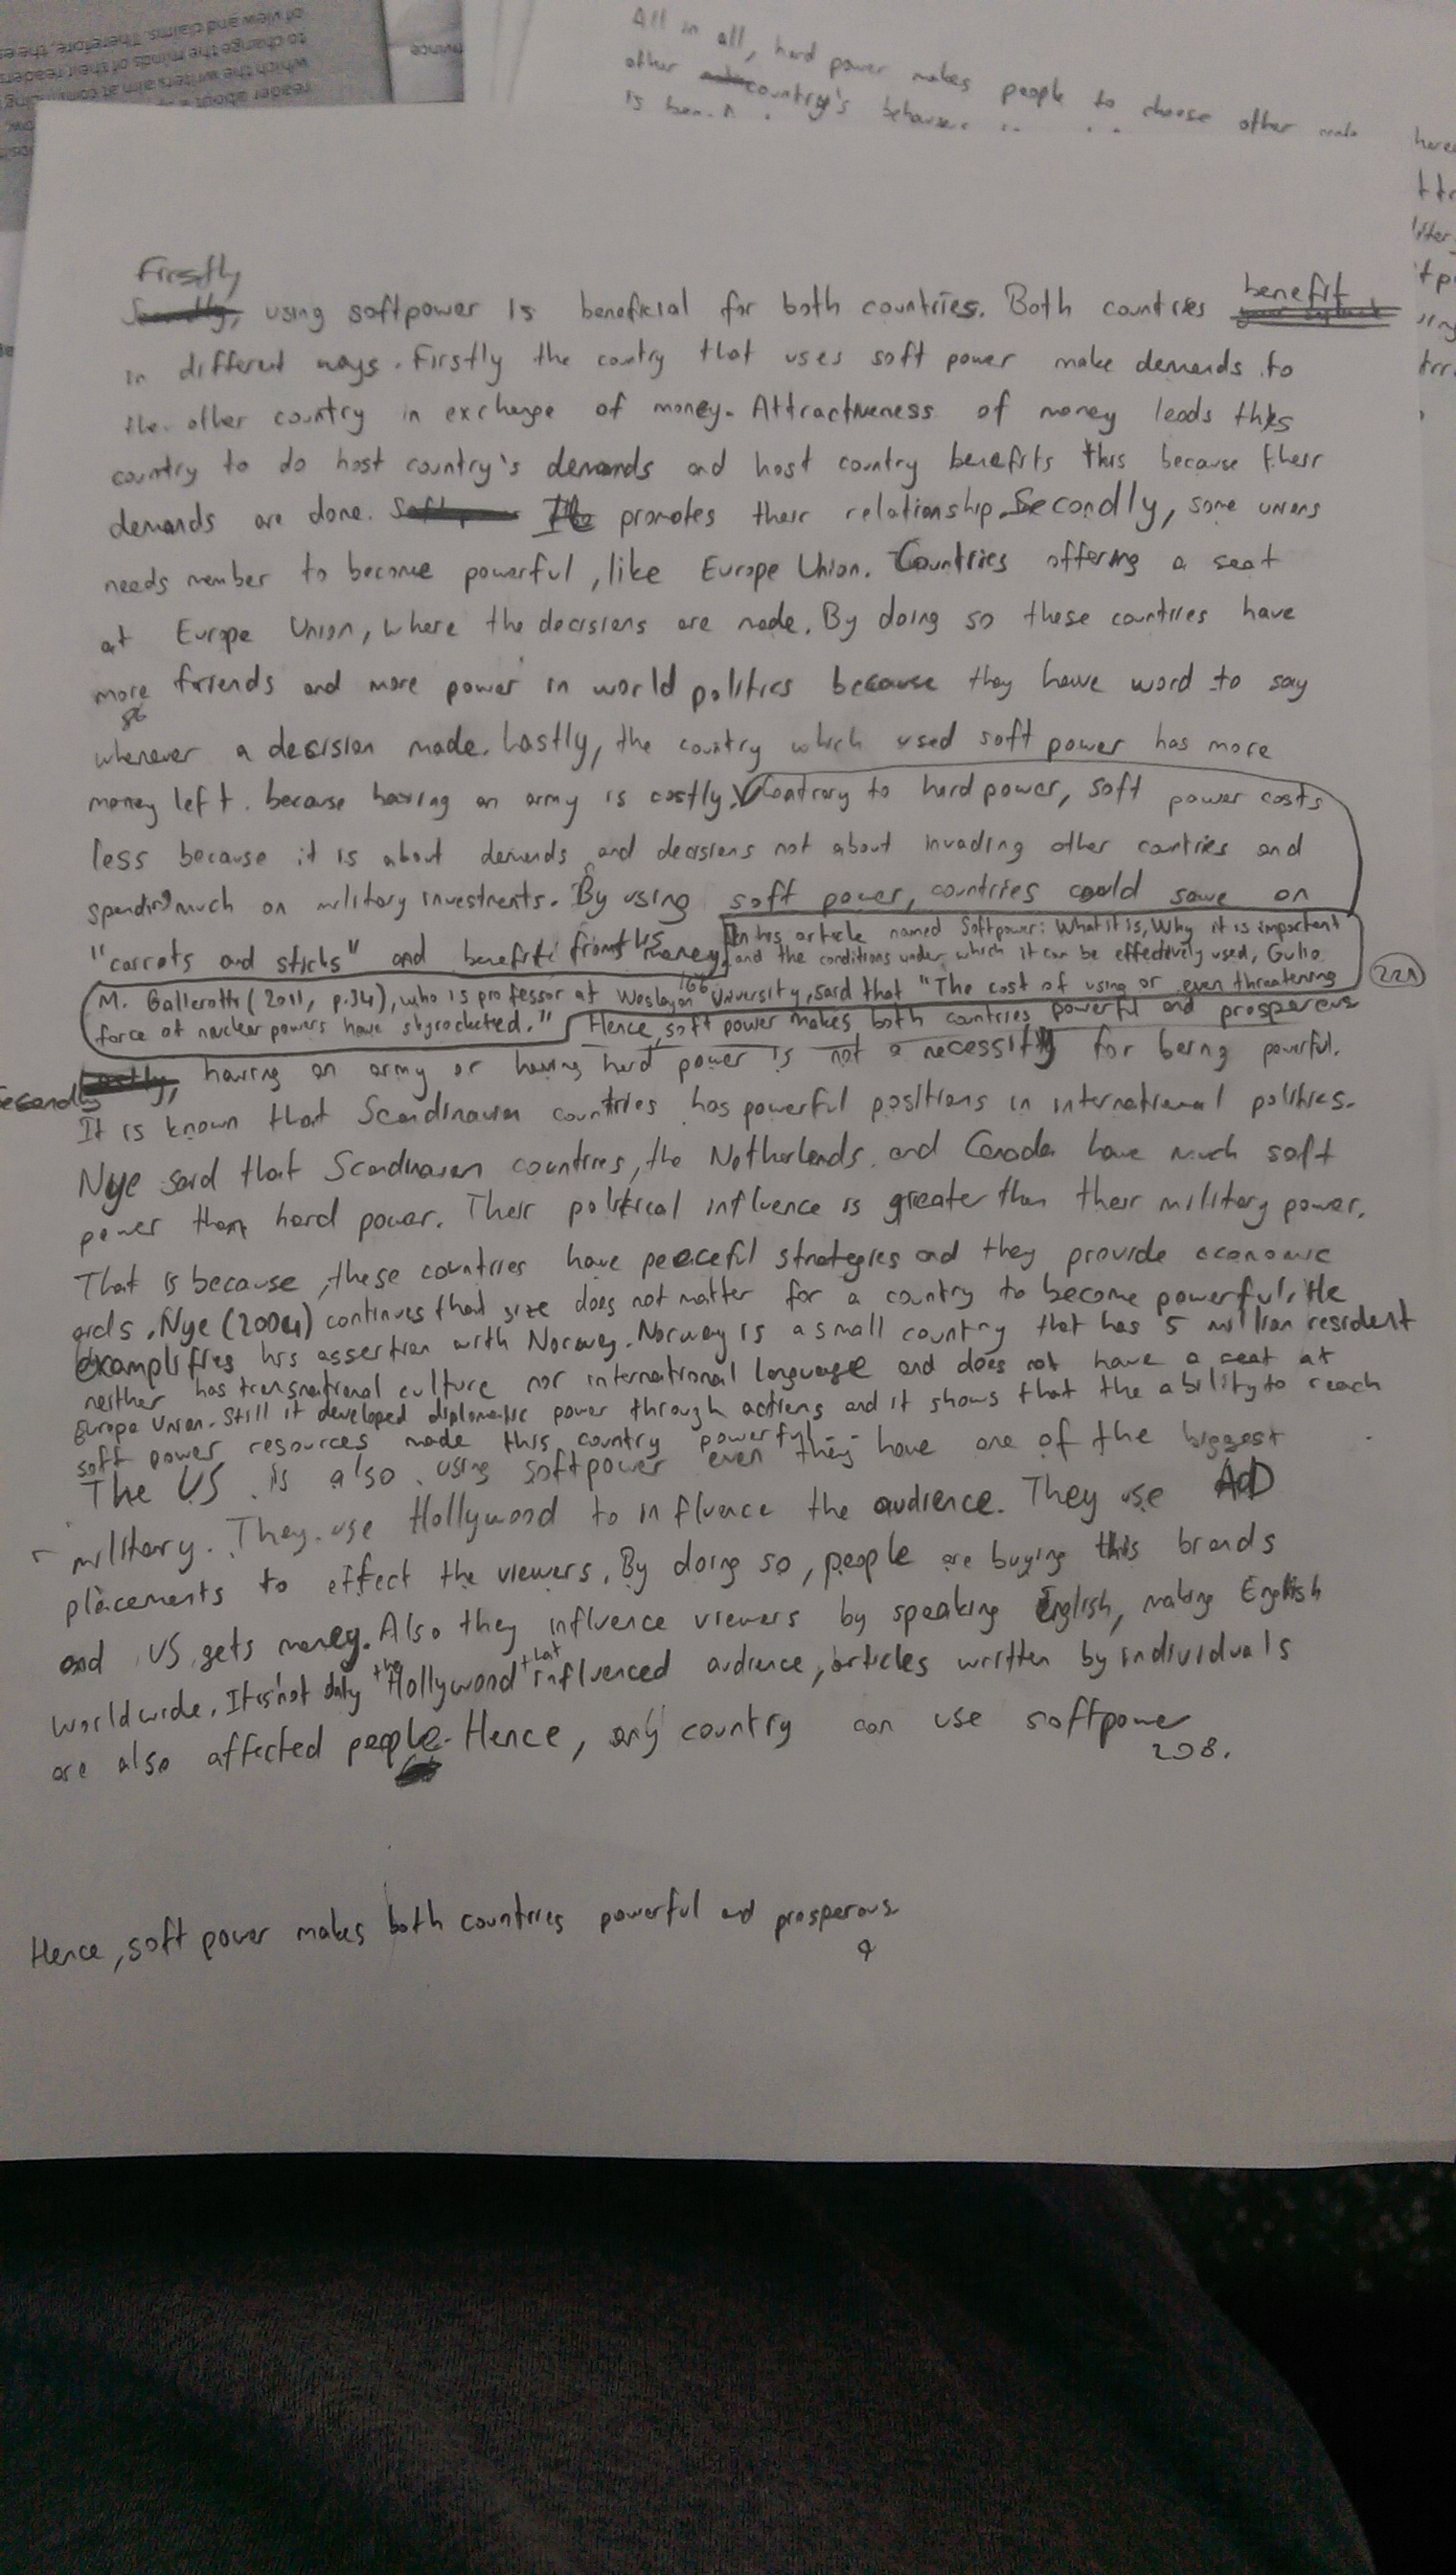 of view and claims. Therefore, the
to change the minds of their readers
which the writers aim at
reader about a
All in all, hard power makes people to choose other
other country's
is
Firstly
Secondly, using softpower is beneficial for both countries. Both countries benefit
in different ways. Firstly the coutry that uses soft power make demands to
the other country in exchange of money. Attractiveness of money leads this
country to do host country's demands and host country benefits this because their
demands are done. Soft power It promotes their relationship. Secondly, some unions
needs member to become powerful, like Europe Union. Countries offering a seat
at Europe Union, where the decisions are made. By doing so these countries have
more friends and more power in world politics because they have word to say
86
whenever a decision made. Lastly, the country which used soft power has more
money left. because having an army is costly. Contrary to hard power, soft power costs
less because it is about demands and decisions not about invading other contries and
spending much on military investments. By using soft power, countries could save on
"carrots and sticks" and benefit from this money. In his article named Softpower: What it is, Why it is important
and the conditions under which it can be effectively used, Gulio
166
M. Gallerotti (2011, p.34), who is professor at Wesleyan University, said that "The cost of using or even threatening
221
force at nuclear powers have skyrocketed." Hence, soft power makes both countries powerful and prosperous
Secondly
Lastly, having an army or having hard power is not a necessity for being powerful.
It is known that Scandinavian countries has powerful positions in international politics.
Nye said that Scandinavian countries, the Netherlands and Canada have much soft
power than hard power. Their political influence is greater than their military power.
That is because, these countries have peaceful strategies and they provide economic
aids. Nye (2004) continues that size does not matter for a country to become powerful. He
examplifies his assertion with Norway. Norway is a small country that has 5 million resident
neither has transnational culture nor international language and does not have a seat at
Europe Union. Still it developed diplomatic power through actions and it shows that the ability to reach
soft power resources made this country powerful.
The US is also using softpower even they have one of the biggest
military. They use Hollywood to influence the audience. They use AD
placements to effect the viewers. By doing so, people are buying this brands
and US gets money. Also they influence viewers by speaking English, making English
worldwide. It is not only the Hollywood that influenced audience, articles written by individuals
are also affected people. Hence, any country can use softpower
208.
Hence, soft power makes both countries powerful and prosperous
9